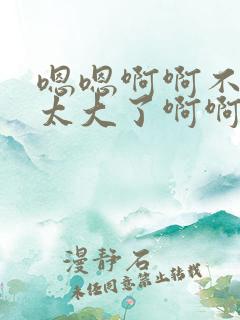 嗯嗯啊啊不
太大了啊啊
漫静石
未经同意禁止转载